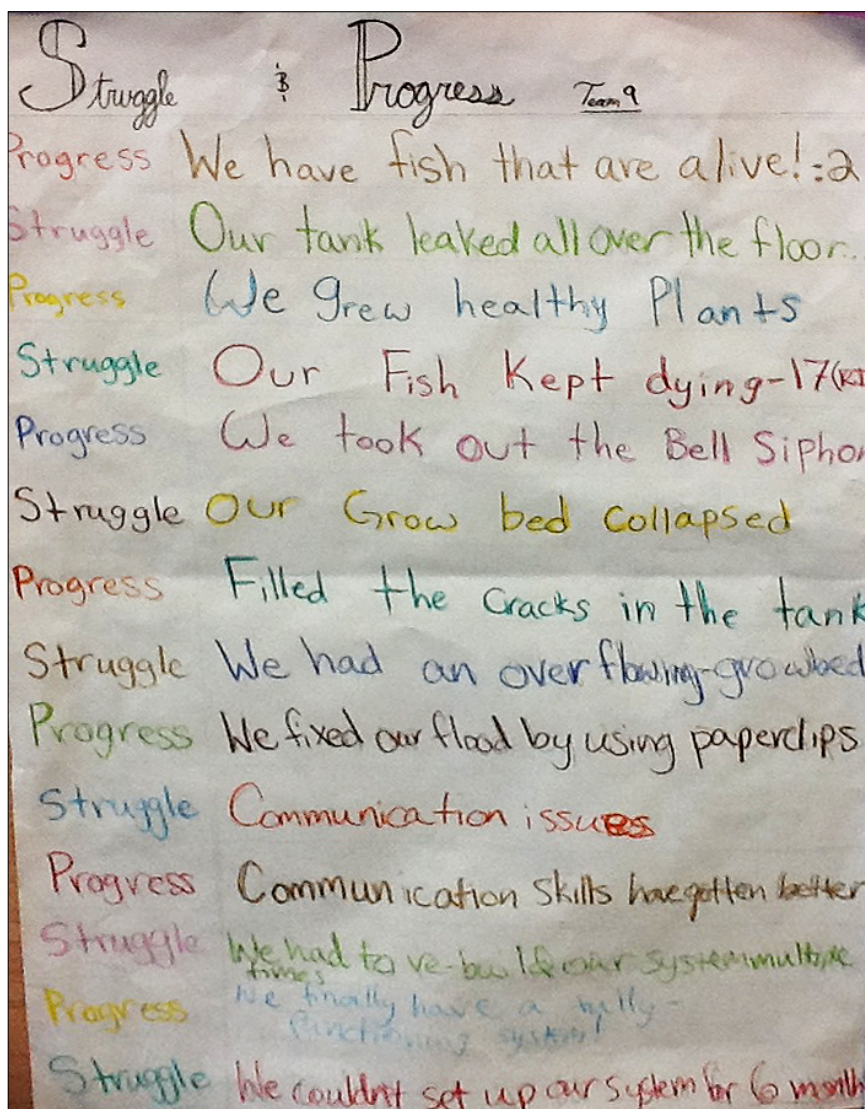 Struggle & Progress Team 9
Progress We have fish that are alive! :2
Struggle Our tank leaked all over the floor..
Progress We grew healthy Plants
Struggle Our Fish Kept dying-17
Progress We took out the Bell Sipho
Struggle Our Grow bed collapsed
Progress Filled the cracks in the tank
Struggle We had an overflowing-growbed
Progress We fixed our flood by using paperclips
Struggle Communication issues
Progress Communication Skills have gotten better
Struggle We had to re-build our system multiple
times
Progress We finally have a fully-
functioning system!
Struggle We couldnt set up our system for 6 month